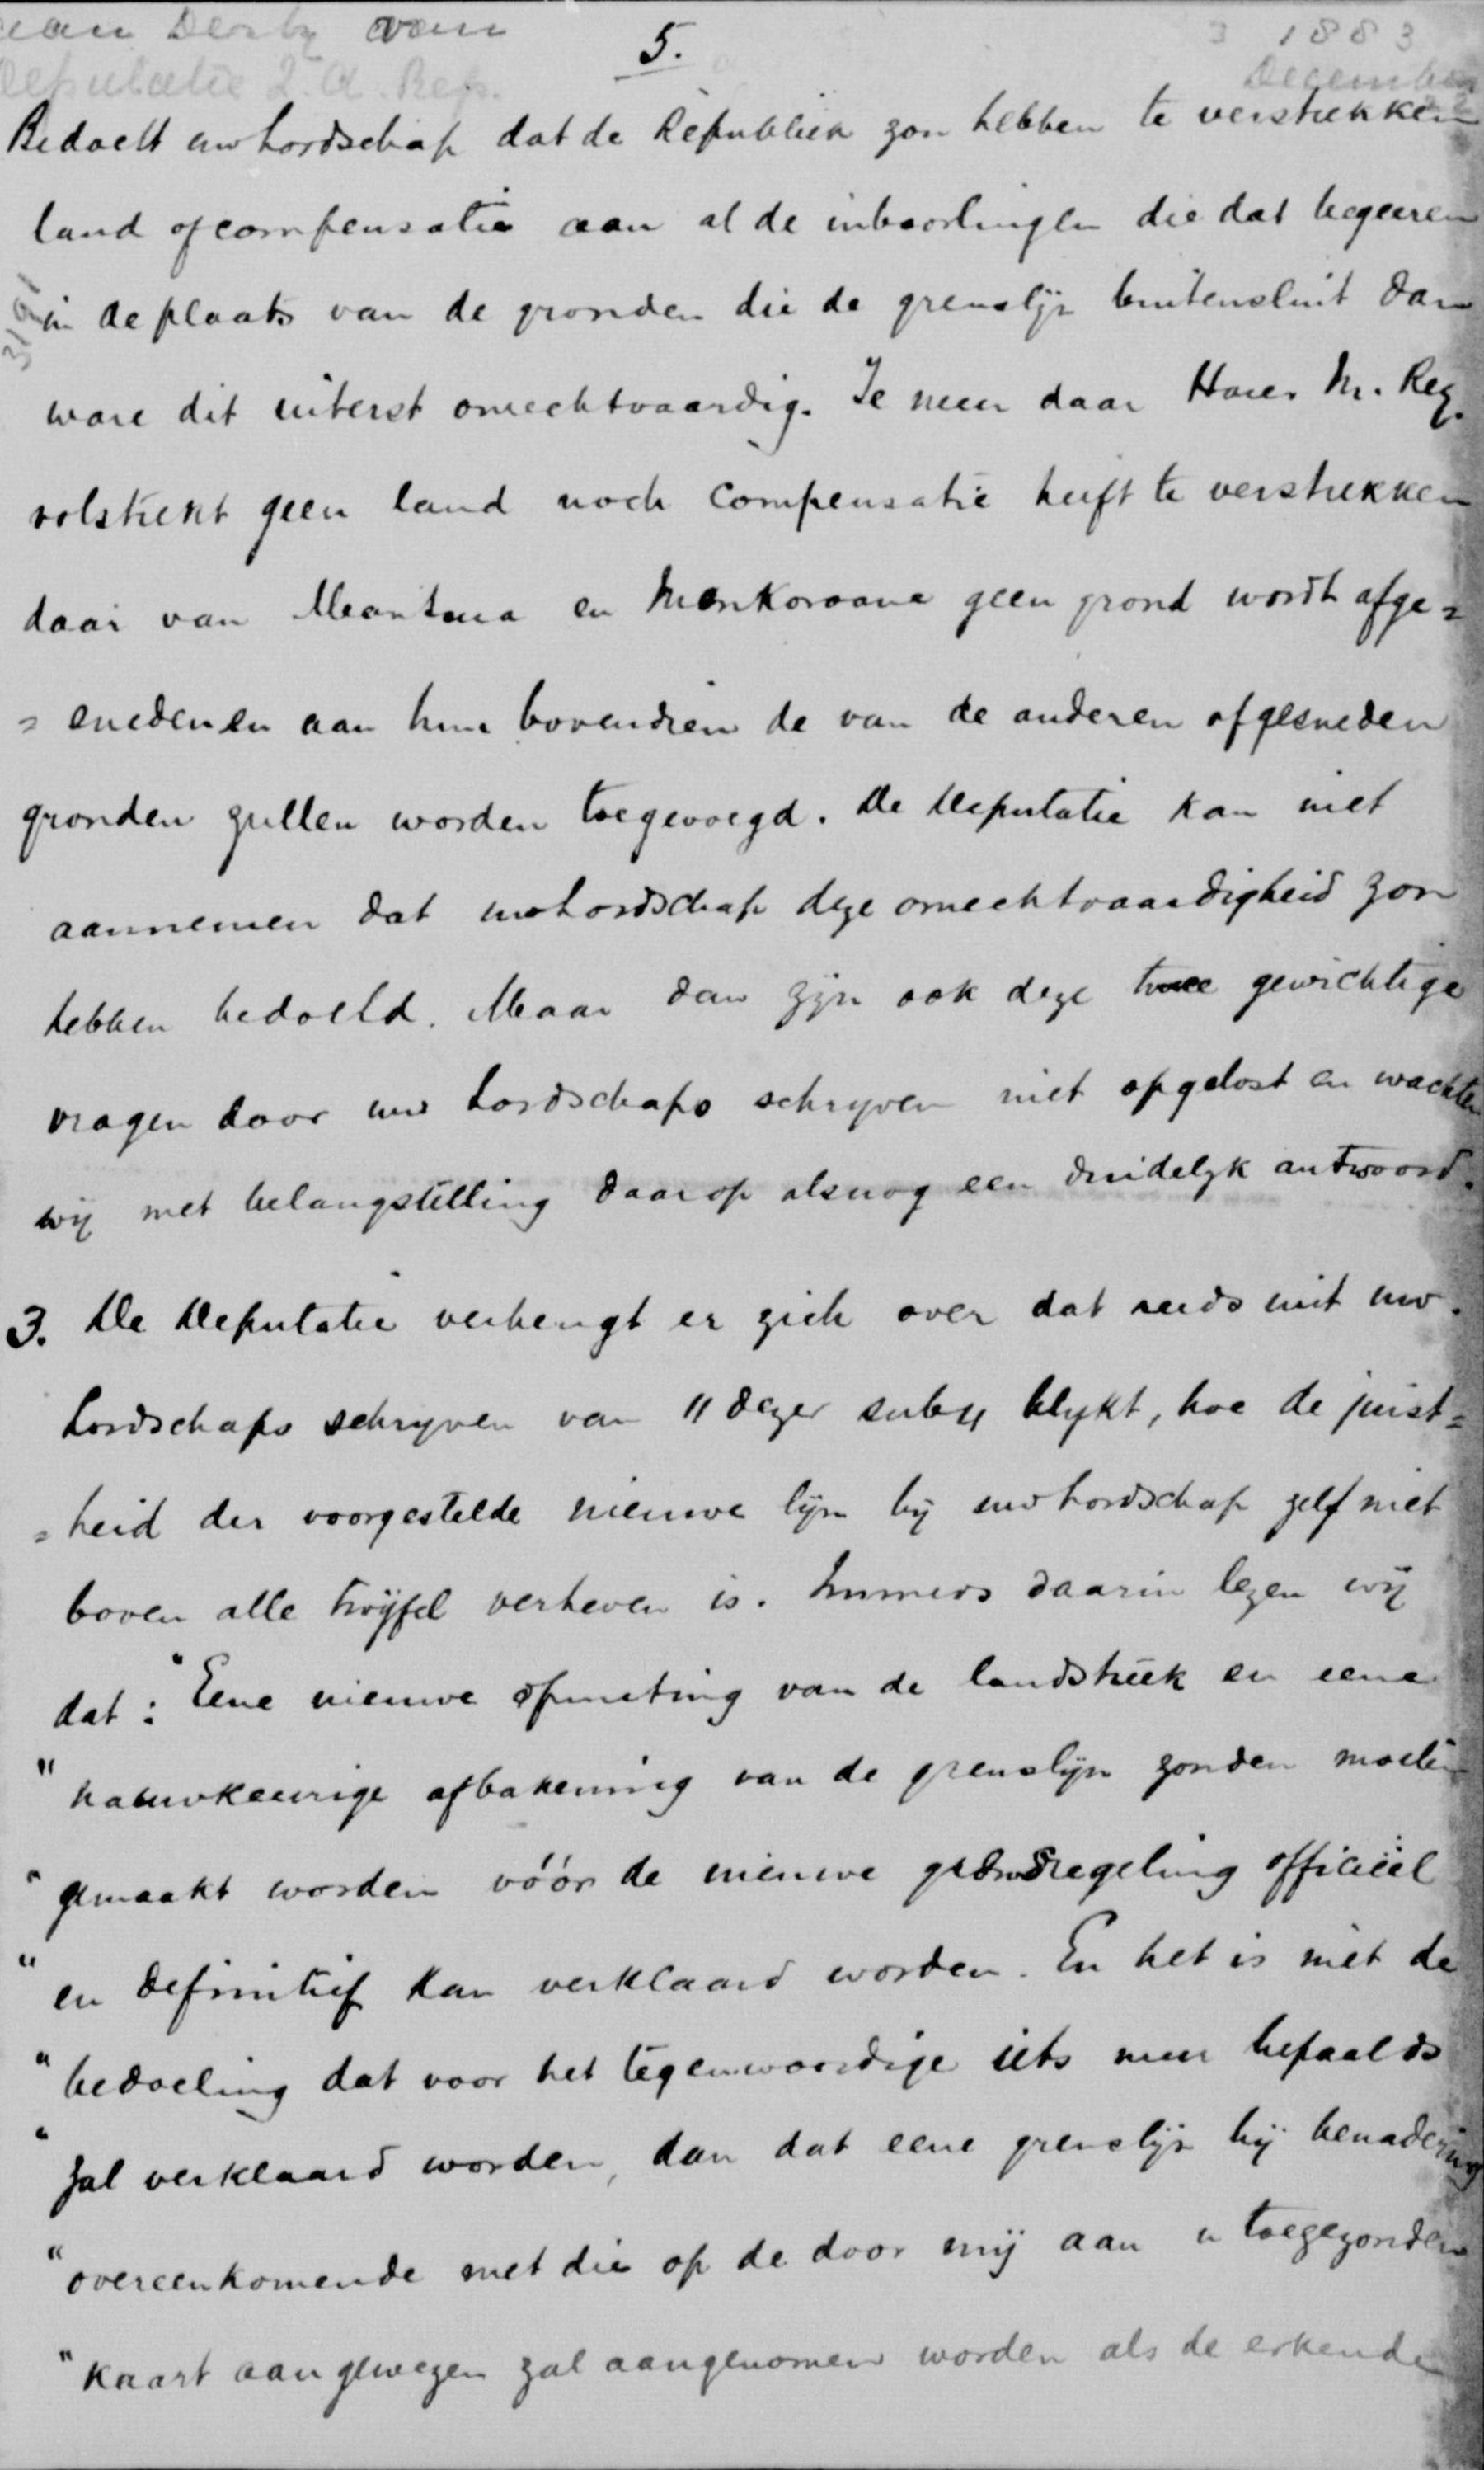 aan Derby van
Deputatie Z.A. Rep.
5.
1883
December
3191
Bedoelt uw Lordschap dat de Republiek zou hebben te verstrekken
land of compensatie aan al de inboorlingen die dat begeeren
in de plaats van de gronden die de grenslijn buitensluit dan
ware dit uiterst onrechtvaardig. Te meer daar Harer M. Reg.
volstrekt geen land noch compensatie heeft te verstrekken
daar van Mantsua en Mankoroane geen grond wordt afge=
=sneden en aan hun bovendien de van de anderen afgesneden
gronden zullen worden toegevoegd. De Deputatie kan niet
aannemen dat uw Lordschap deze onrechtvaardigheid zou
hebben bedoeld. Maar dan zyn ook deze twee gewichtige
vragen door uw Lordschaps schryven niet opgelost en wachten
wij met belangstelling daarop alsnog een duidelyk antwoord.
3. De Deputatie verheugt er zich over dat reeds uit uw
Lordschaps schryven van 11 dezer sub 4 blykt, hoe de juist=
=heid der voorgestelde nieuwe lijn bij uw Lordschap zelf niet
boven alle twijfel verheven is. Immers daarin lezen wij
dat: "Eene nieuwe opmeting van de landstreek en eene
"nauwkeurige afbakening van de grenslijn zouden moeten
"gemaakt worden vóór de nieuwe grensregeling officieel
"en definitief kan verklaard worden. En het is niet de
"bedoeling dat voor het tegenwoordige iets meer bepaalds
"zal verklaard worden, dan dat eene grenslijn bij benadering
"overeenkomende met die op de door mij aan u toegezonden
"kaart aangewezen zal aangenomen worden als de erkende